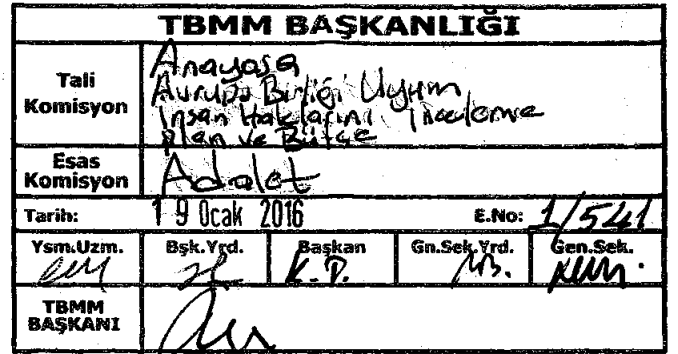 TBMM BAŞKANLIĞI
Tali Komisyon
Anayasa
Avrupa Birliği Uyum
İnsan Haklarını İnceleme
Plan ve Bütçe
Esas Komisyon
Adalet
Tarih: 19 Ocak 2016 E.No: 1/541
Ysm.Uzm. Bşk.Yrd. Başkan Gn.Sek.Yrd. Gen.Sek.
K.D.
TBMM
BAŞKANI